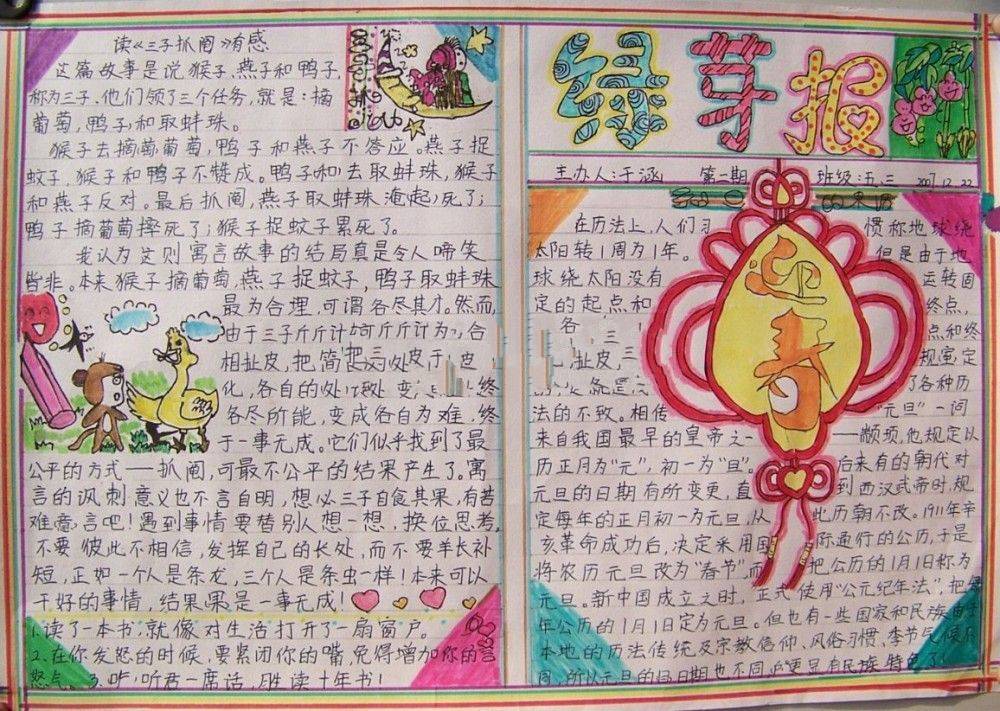 读《三子抓阄》有感
这篇故事是说猴子、燕子和鸭子,
称为三子。他们领了三个任务,就是:摘
葡萄,鸭子和取蚌珠。
猴子去摘葡萄葡萄,鸭子和燕子不答应。燕子捉
蚊子,猴子和鸭子不赞成。鸭子和去取蚌珠,猴子
和燕子反对。最后抓阄,燕子取蚌珠淹起死了;
鸭子摘葡萄摔死了;猴子捉蚊子累死了。
我认为这则寓言故事的结局真是令人啼笑
皆非。本来猴子摘葡萄,燕子捉蚊子,鸭子取蚌珠
最为合理,可谓各尽其才。然而,
由于三子斤斤计
相扯皮,把简
化,各自的
各尽所能,变成各自为难,终
于一事无成。它们似乎找到了最
公平的方式——抓阄,可最不公平的结果产生了。寓
言的讽刺意义也不言自明,想必三子自食其果,有苦
难言吧!遇到事情要替别人想一想,换位思考,
不要彼此不相信,发挥自己的长处,而不要羊长补
短,正如一个人是条龙,三个人是条虫一样!本来可以
干好的事情,结果果是一事无成!
1.读了一本书,就像对生活打开了一扇窗户。
2.在你发怒的时候,要紧闭你的嘴,免得增加你的
怒气。3.听君一席话,胜读十年书!
绿芽报
主办人:于涵 第一期 班级:五.三 2007.12.22
迎春
在历法上,人们习惯称地球绕
太阳转1周为1年。但是由于地
球绕太阳没有运转固
定的起点和终点,
各
点和终
扯皮,三
规定,定
了各种历
法的不致。相传“元旦”一词
来自我国最早的皇帝之一——颛顼,他规定以
历正月为“元”,初一为“旦”。后来有的朝代对
元旦的日期有所变更,直到西汉武帝时,规
定每年的正月初一为元旦,从此历朝不改。1911年辛
亥革命成功后,决定采用国际通行的公历,于是
将农历元旦改为“春节”,而把公历的1月1日称为
元旦。新中国成立之时,正式使用“公元纪年法”,把每
年公历的1月1日定为元旦。但也有一些国家和民族由于
本地的历法传统及宗教信仰、风俗习惯、季节气候不
同,所以元旦的日期也不同,更显有民族特色了